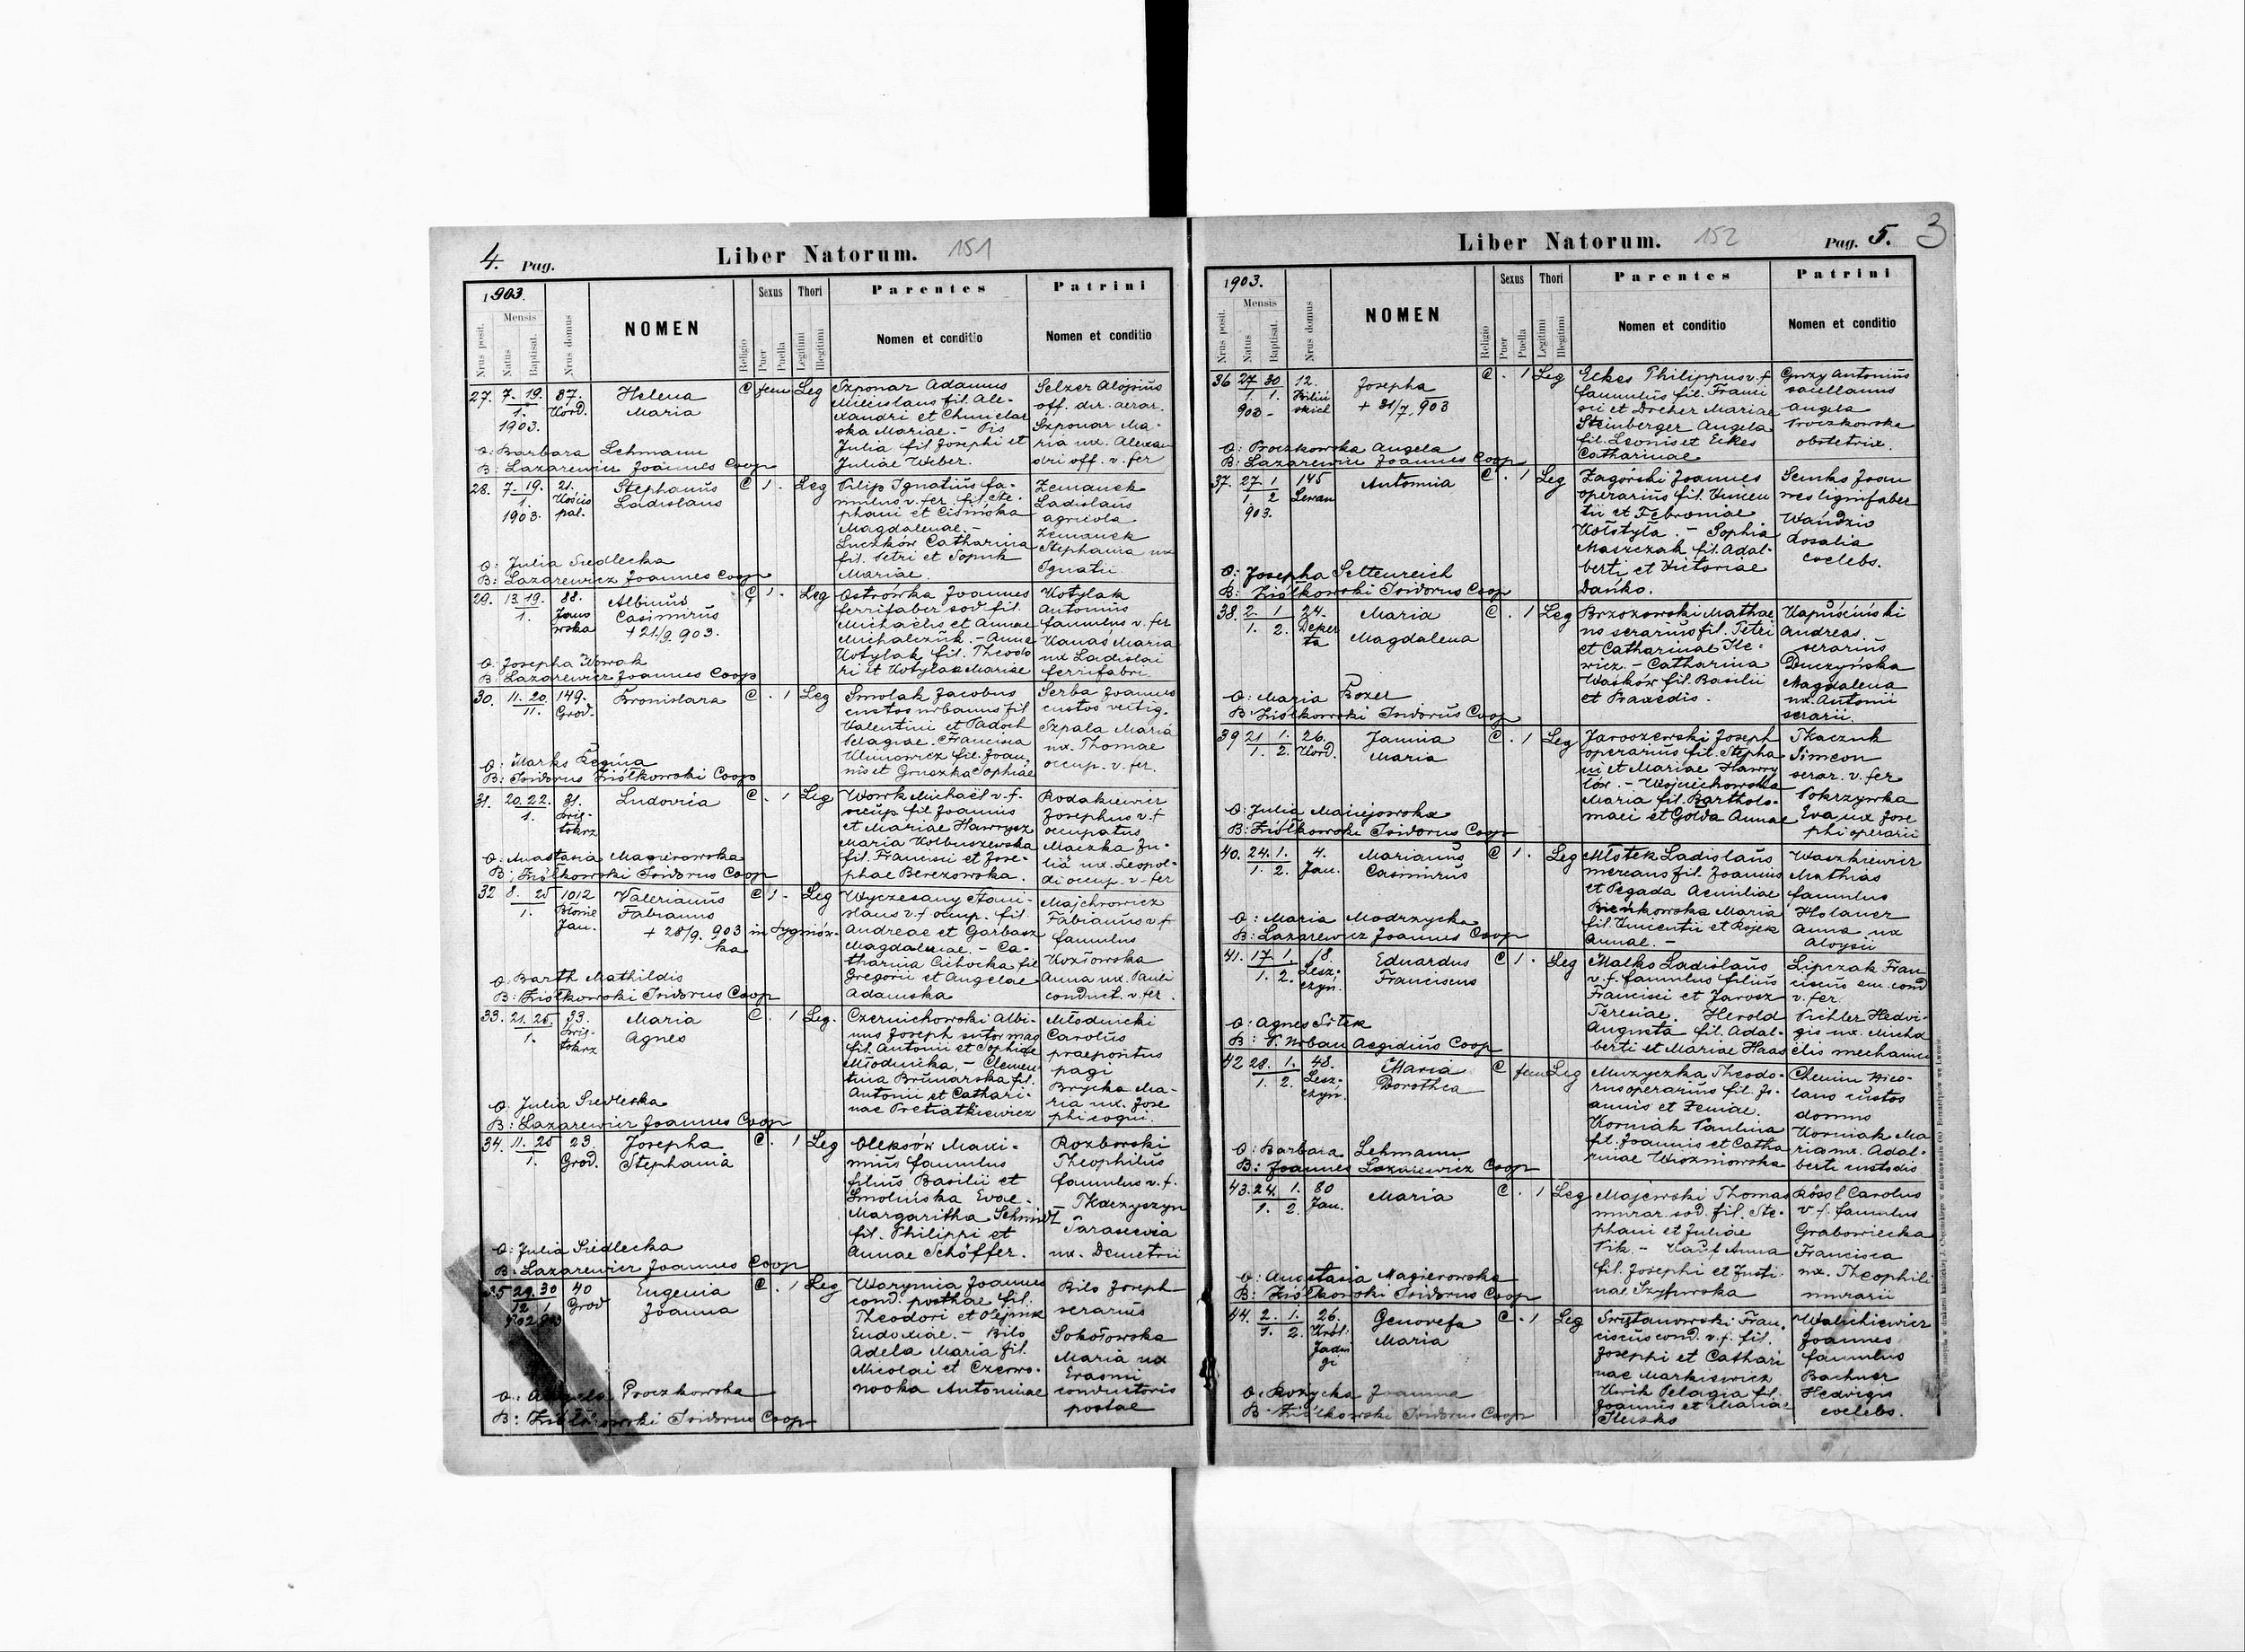 4. Pag.
Liber Natorum. 151
1903.
Nrus posit.
Mensis
Natus
Baptisat.
Nrus domus
NOMEN
Religio
Sexus
Puer
Puella
Thori
Legitimi
Illegitimi
Parentes
Nomen et conditio
Patrini
Nomen et conditio
27. 7. 19. 1. 1903.
87. Kord.
Helena
Maria
C fem Leg
Szponar Adamus
Miecislaus fil. Ale-
xandri et Chmielar
ska Mariae. - Pis
Julia fil Josephi et
Juliae Weber.
Selzer Aloisius
off. dir. aerar.
Szponar Ma-
ria ux. Alexan
dri off. v. fer
O: Barbara Lehmann
B: Lazarewicz Joannes Coop
28. 7. 19. 1. 1903.
21. Kościo
pal.
Stephanus
Ladislaus
C 1. Leg
Filip Ignatius fa-
mulus v. fer. fil. Ste-
phani et
Magdalenae. -
Luczków Catharina
fil. Petri et Sopuk
Mariae.
Zemanek
Ladislaus
agricola
Zemanek
Stephania ux
Ignatii
O: Julia Siedlecka
B: Lazarewicz Joannes Coop
29. 13. 19. 1.
88.
Jano
wska
Albinus
Casimirus
+ 21/9. 903.
C 1. Leg
Ostrówka Joannes
ferrifaber sod fil.
Michaelis et Annae
Michalczuk. - Anna
Kotylak fil. Theodo
ri et Kotylak Mariae
Kotylak
Antonius
famulus v. fer
Kanas Maria
ux Ladislai
ferrifabri
O: Josepha Nowak
B: Lazarewicz Joannes Coop
30. 11. 20 11.
149.
Grod.
Bronislara
C. 1 Leg
Smolak Jacobus
custos urbanus fil
Valentini et Padoch
Pelagiae. Francisca
Klimowicz fil. Joan-
nis et Gruszka Sophiae
Serba Joannes
custos vectig.
Szpala Maria
ux. Thomae
occup. v. fer.
O: Marks Regina
B: Isidorus Ziółkowski Coop
31. 20. 22. 1.
31.
Świę-
tokrz
Ludovica
C. 1 Leg
Wowk Michaël v. f.
occup fil Joannis
et Mariae Hawrysz
Maria Kolbuszewska
fil. Francisci et Jose-
phae Berezowska.
Rodakiewicz
Josephus v. f
occupatus
Maczka Ju-
lia ux. Leopol-
di occup. v. fer
O: Anastasia Magierowska
B: Ziółkowski Isidorus Coop
32 8. 25 1.
1012
Błonie
Jan.
Valerianus
Fabianus
+ 28/9. 903 in Sygniów-
ka
C 1. Leg
Wyczesany Stani-
slaus v. f occup. fil
Andreae et Garbasz
Magdalenae. - Ca-
tharina Cichocka fil
Gregorii et Angelae
Adamska
Majchrowicz
Fabianus v f
famulus
Kozłowska
Anna ux. Pauli
conduct. v. fer.
O: Barth Mathildis
B: Ziółkowski Isidorus Coop
33. 21. 25. 1.
33.
Świę-
tokrz
Maria
Agnes
C. 1 Leg.
Czernichowski Albi-
nus Joseph sutor mag
fil. Antonii et Sophiae
Młodnicka. - Clemen
tina Brunarska fil.
Antonii et Cathari-
nae Pretiatkiewicz
Młodnicki
Carolus
praepositus
pagi
Brycka Ma-
ria ux. Jose
phi coqui.
O. Julia Siedlecka
B: Lazarewicz Joannes Coop
34. 11. 25 1.
23.
Grod.
Josepha
Stephania
C. 1 Leg
Oleksów Maxi-
mius famulus
filius Basilii et
Smolińska Evae.
Margaritha Schmidt
fil. Philippi et
Annae Schöffer.
Rozborski
Theophilus
famulus v. f.
Tkaczyszyn
Parascevia
ux. Demetrii
O: Julia Siedlecka
B: Lazarewicz Joannes Coop
35 29. 30 12 1 902 903
40
Grod
Eugenia
Joanna
C. 1 Leg
Warymia Joannes
cond. posthae fil.
Theodori et Olejnik
Eudoxiae. - Bilo
Adela Maria fil.
Nicolai et Czerwo-
nooka Antoninae
Bilo Joseph
serarius
Sokołowska
Maria ux
Erasmi
conductoris
postae
O: Angela Proczkowska
B: Ziółkowski Isidorus Coop
Liber Natorum. 152
Pag. 5. 3
1903.
Nrus posit.
Mensis
Natus
Baptisat.
Nrus domus
NOMEN
Religio
Sexus
Puer
Puella
Thori
Legitimi
Illegitimi
Parentes
Nomen et conditio
Patrini
Nomen et conditio
36 27 30 1. 1. 903 -
12.
Kiliń
skich
Josepha
+ 31/7. 903
C. 1 Leg
Eckes Philippus v. f
famulus fil. Franci
sci et Dreher Mariae
Steinberger Angela
fil. Leonis et Eckes
Catharinae
Antonius
Angela
Proczkowska
obstetrix.
O: Proczkowska Angela
B: Lazarewicz Joannes Coop
37. 27 1 1. 2 903.
145
Lewan
Antonia
C. 1 Leg
Zagórski Joannes
operarius fil. Vincen
tii et Febroniae
Kołstyła. - Sophia
Maszczak fil. Adal-
berti et Victoriae
Dańko.
Senks Joan
nes lignifaber
Wandzio
Rosalia
coelebs.
O: Josepha Seltenreich
B: Ziółkowski Isidorus Coop
38. 2. 1 1. 2.
24.
Deker
ta
Maria
Magdalena
C. 1 Leg
Brzozowski Mathae
us serarius fil. Petri
et Catharinae Ile-
wicz. - Catharina
Waśków fil. Basilii
et Praxedis.
Kapuściński
Andreas.
serarius
Duczyńska
Magdalena
ux. Antonii
serarii.
O: Maria Boxer
B: Ziółkowski Isidorus Coop
39 21 1. 1. 2.
26.
Kord.
Janina
Maria
C. 1 Leg
Jaroszewski Joseph
operarius fil. Stepha
ni et Mariae Hawry
łów. - Wojciechowska
Maria fil. Bartholo-
maei et Golda Annae
Tkaczuk
Simeon
serar. v. fer
Pokrzywka
Eva ux Jose
phi operarii
O: Julia Maciejowska
B: Ziółkowski Isidorus Coop
40. 24. 1. 1. 2.
4.
Jan.
Marianus
Casimirus
C 1. Leg
Młotek Ladislaus
mercans fil. Joannis
et Pegada Aemiliae
Bieńkowska Maria
fil. Vincentii et Rojek
Annae. -
Waszkiewicz
Mathias
famulus
Holaner
Anna ux
Aloysii
O: Maria Modrzycka
B: Lazarewicz Joannes Coop
41. 17 1. 1. 2.
18.
Lesz-
czyn.
Eduardus
Franciscus
C 1. Leg
Malko Ladislaus
v. f. famulus filius
Francisci et Jarosz
Teresiae. Herold
Augusta fil. Adal-
berti et Mariae Haas
Lipczak Fran
ciscus em. cond
v. fer.
Pichler Hedvi-
gis ux. Micha
ëlis mechanici
O: Agnes Sitek
B: P. Urban Aegidius Coop
42 28. 1. 1. 2.
48.
Lesz-
czyn.
Maria
Dorothea
C fem Leg
Muzyczka Theodo-
rus operarius fil. Jo-
annis et Xeniae.
Korniak Paulina
fil. Joannis et Catha
rinae Wiszniowska
Chemin Nico-
laus custos
domus
Korniak Ma
ria ux. Adal-
berti custodis
O: Barbara Lehmann
B: Joannes Lazarewicz Coop
43. 24. 1. 1. 2.
80
Jan.
Maria
C. 1 Leg
Majewski Thomas
murar. sod. fil. Ste-
phani et Juliae
Pik. - Kauf Anna
fil. Josephi et Justi-
nae
Rössl Carolus
v f. famulus
Grabowiecka
Francisca
ux. Theophili
murarii
O: Anastasia Magierowska
B: Ziółkowski Isidorus Coop
44. 2. 1. 1. 2.
26.
Król.
Jadwi
gi
Genovefa
Maria
C. 1 Leg
Swistanowski Fran-
ciscus cond. v. f. fil.
Josephi et Cathari
nae Markiewicz
Kwik Pelagia fil.
Joannis et Mariae
Joannes
famulus
Bachner
Hedvigis
coelebs.
O: Rożycka Joanna
B: Ziółkowski Isidorus Coop